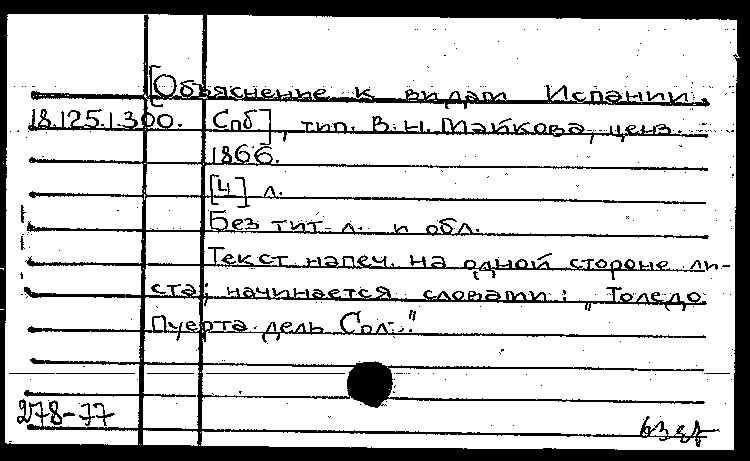 [Объяснение к видам Испании.
18.125.1.300. Спб], тип. В.Н. Майкова, ценз.
1866.
[4] л.
Без тит. л. и обл.
Текст напеч. на одной стороне ли-
ста; начинается словами: „Толедо.
Пуерта дель Сол..."
278-77